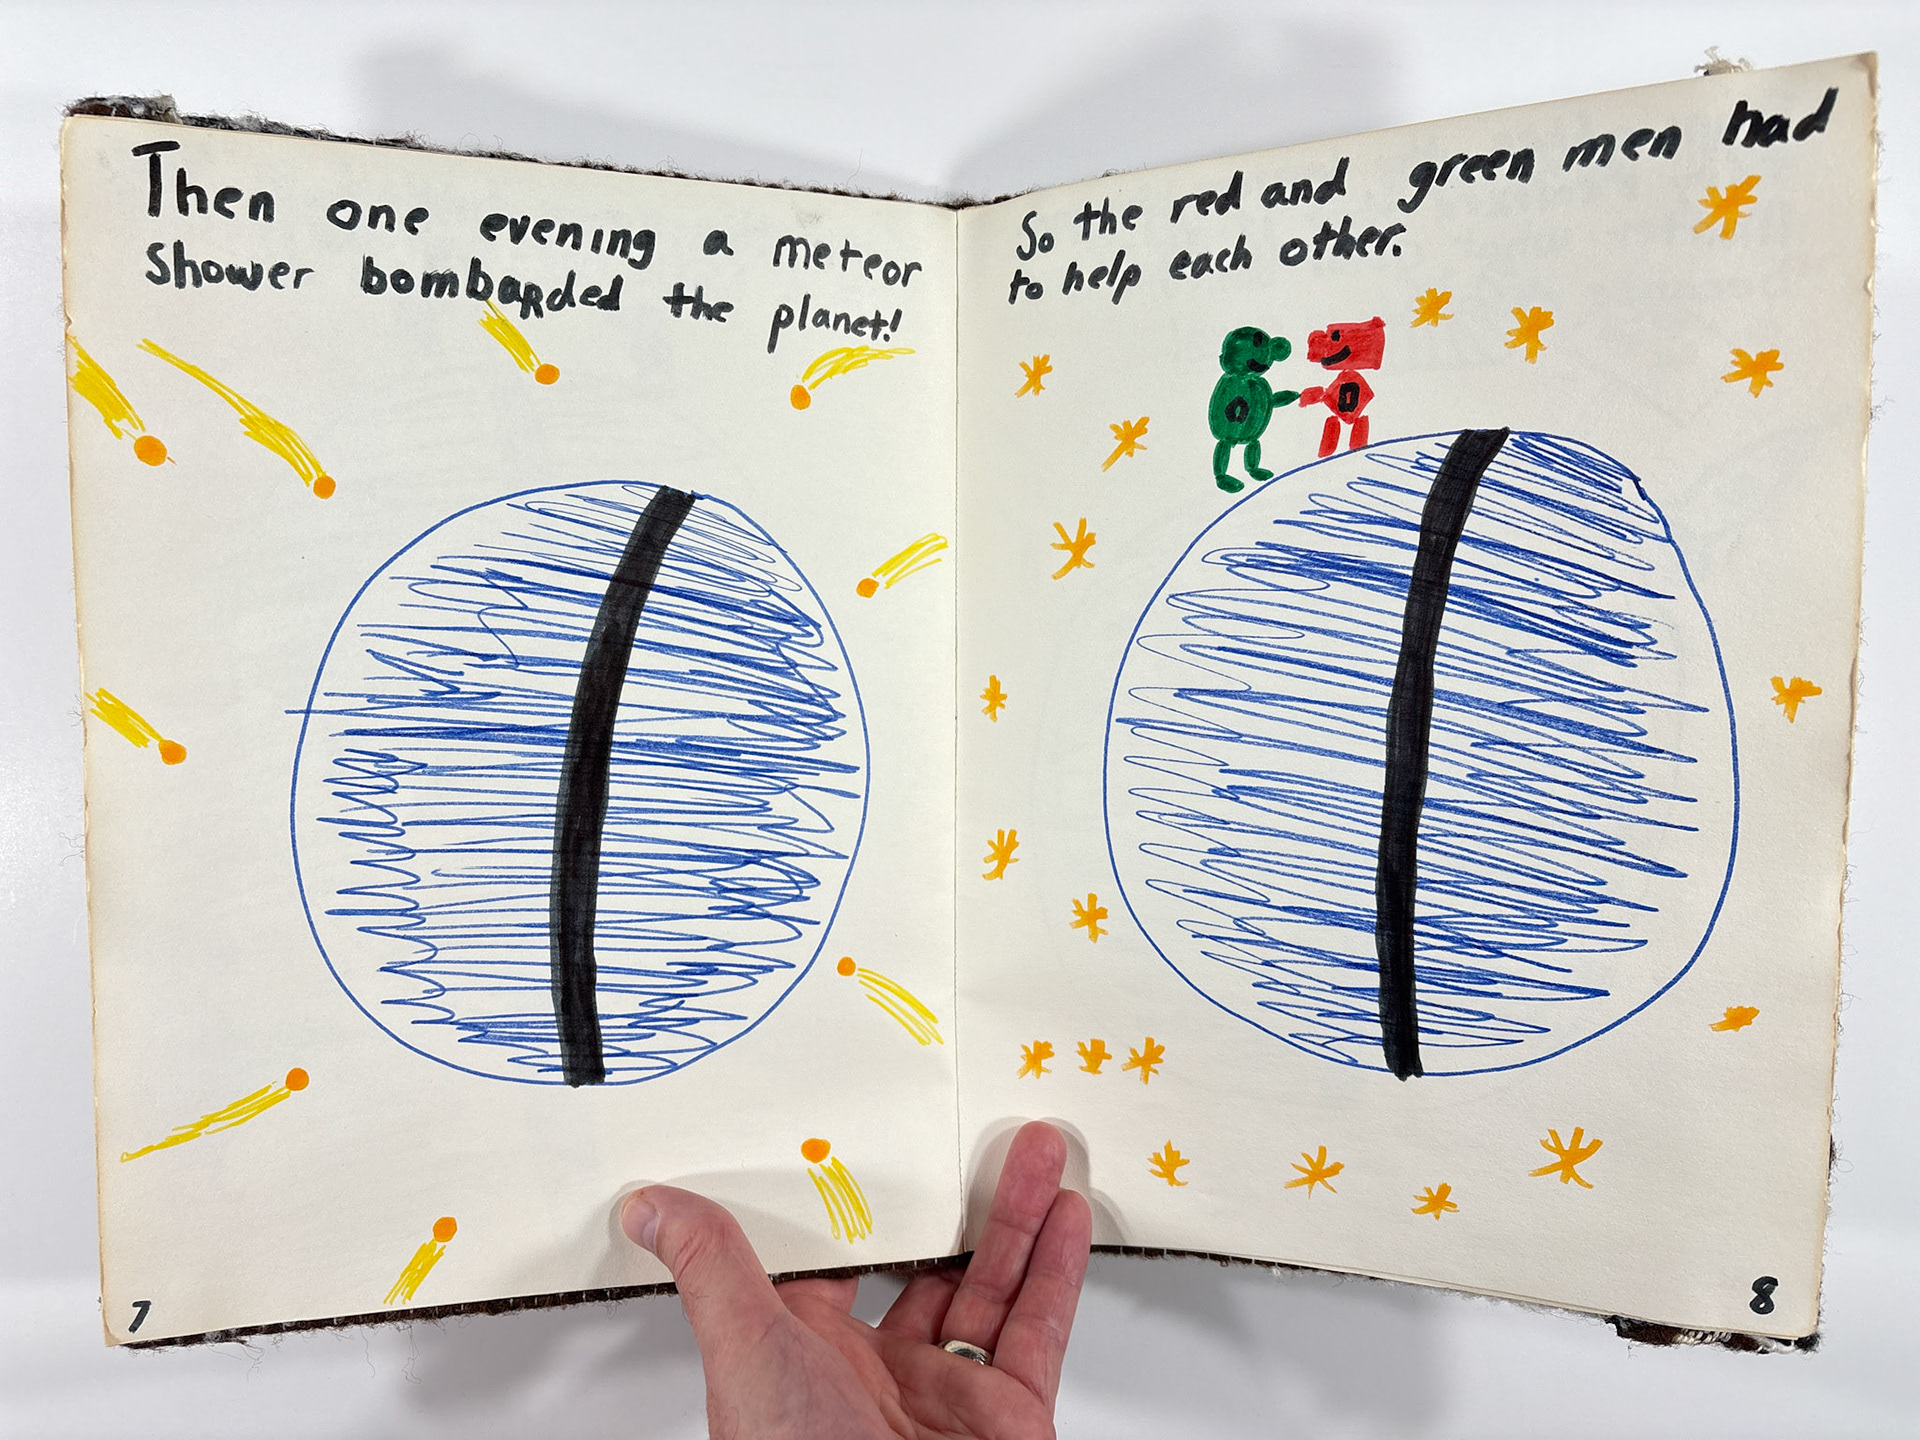 Then one evening a meteor
shower bombarded the planet!
7
So the red and green men had
to help each other.
0
1
8